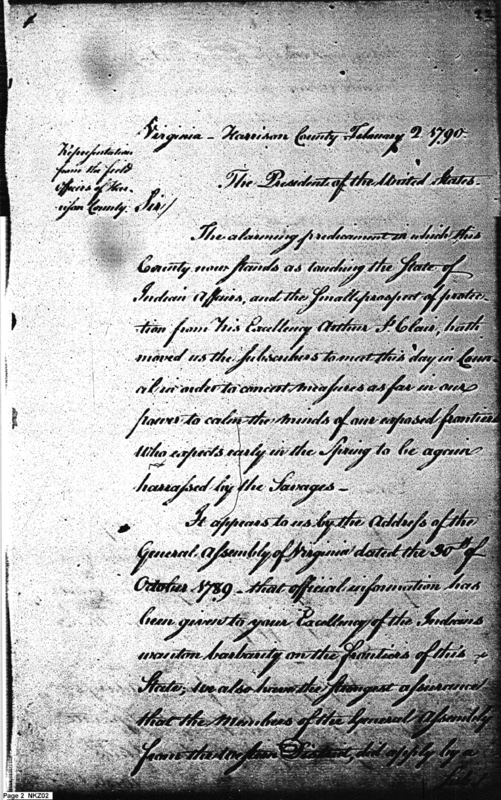 Virginia – Harrison County February 2 1790
Representation
from the field
Officers of Har-
rison County
The President of the United States.
Sir/
The alarming predicament in which this
County now stands as touching the State of
Indian Affairs, and the Small prospect of protec-
tion from his Excellency Arthur St Clair, hath
moved us the Subscribers to meet this day in Coun-
cil in order to concert measures as far in our
power to calm the minds of our exposed frontiers
who expects early in the Spring to be again
harrassed by the Savages –
It appears to us by the Address of the
General Assembly of Virginia dated the 30th of
October 1789 – that official information has
been given to your Excellency of the Indians
wanton barbarity on the frontiers of this
State; we also have the strongest assurance
that the Members of the General Assembly
from the Western District, did apply by a
Page 2 NKZ02